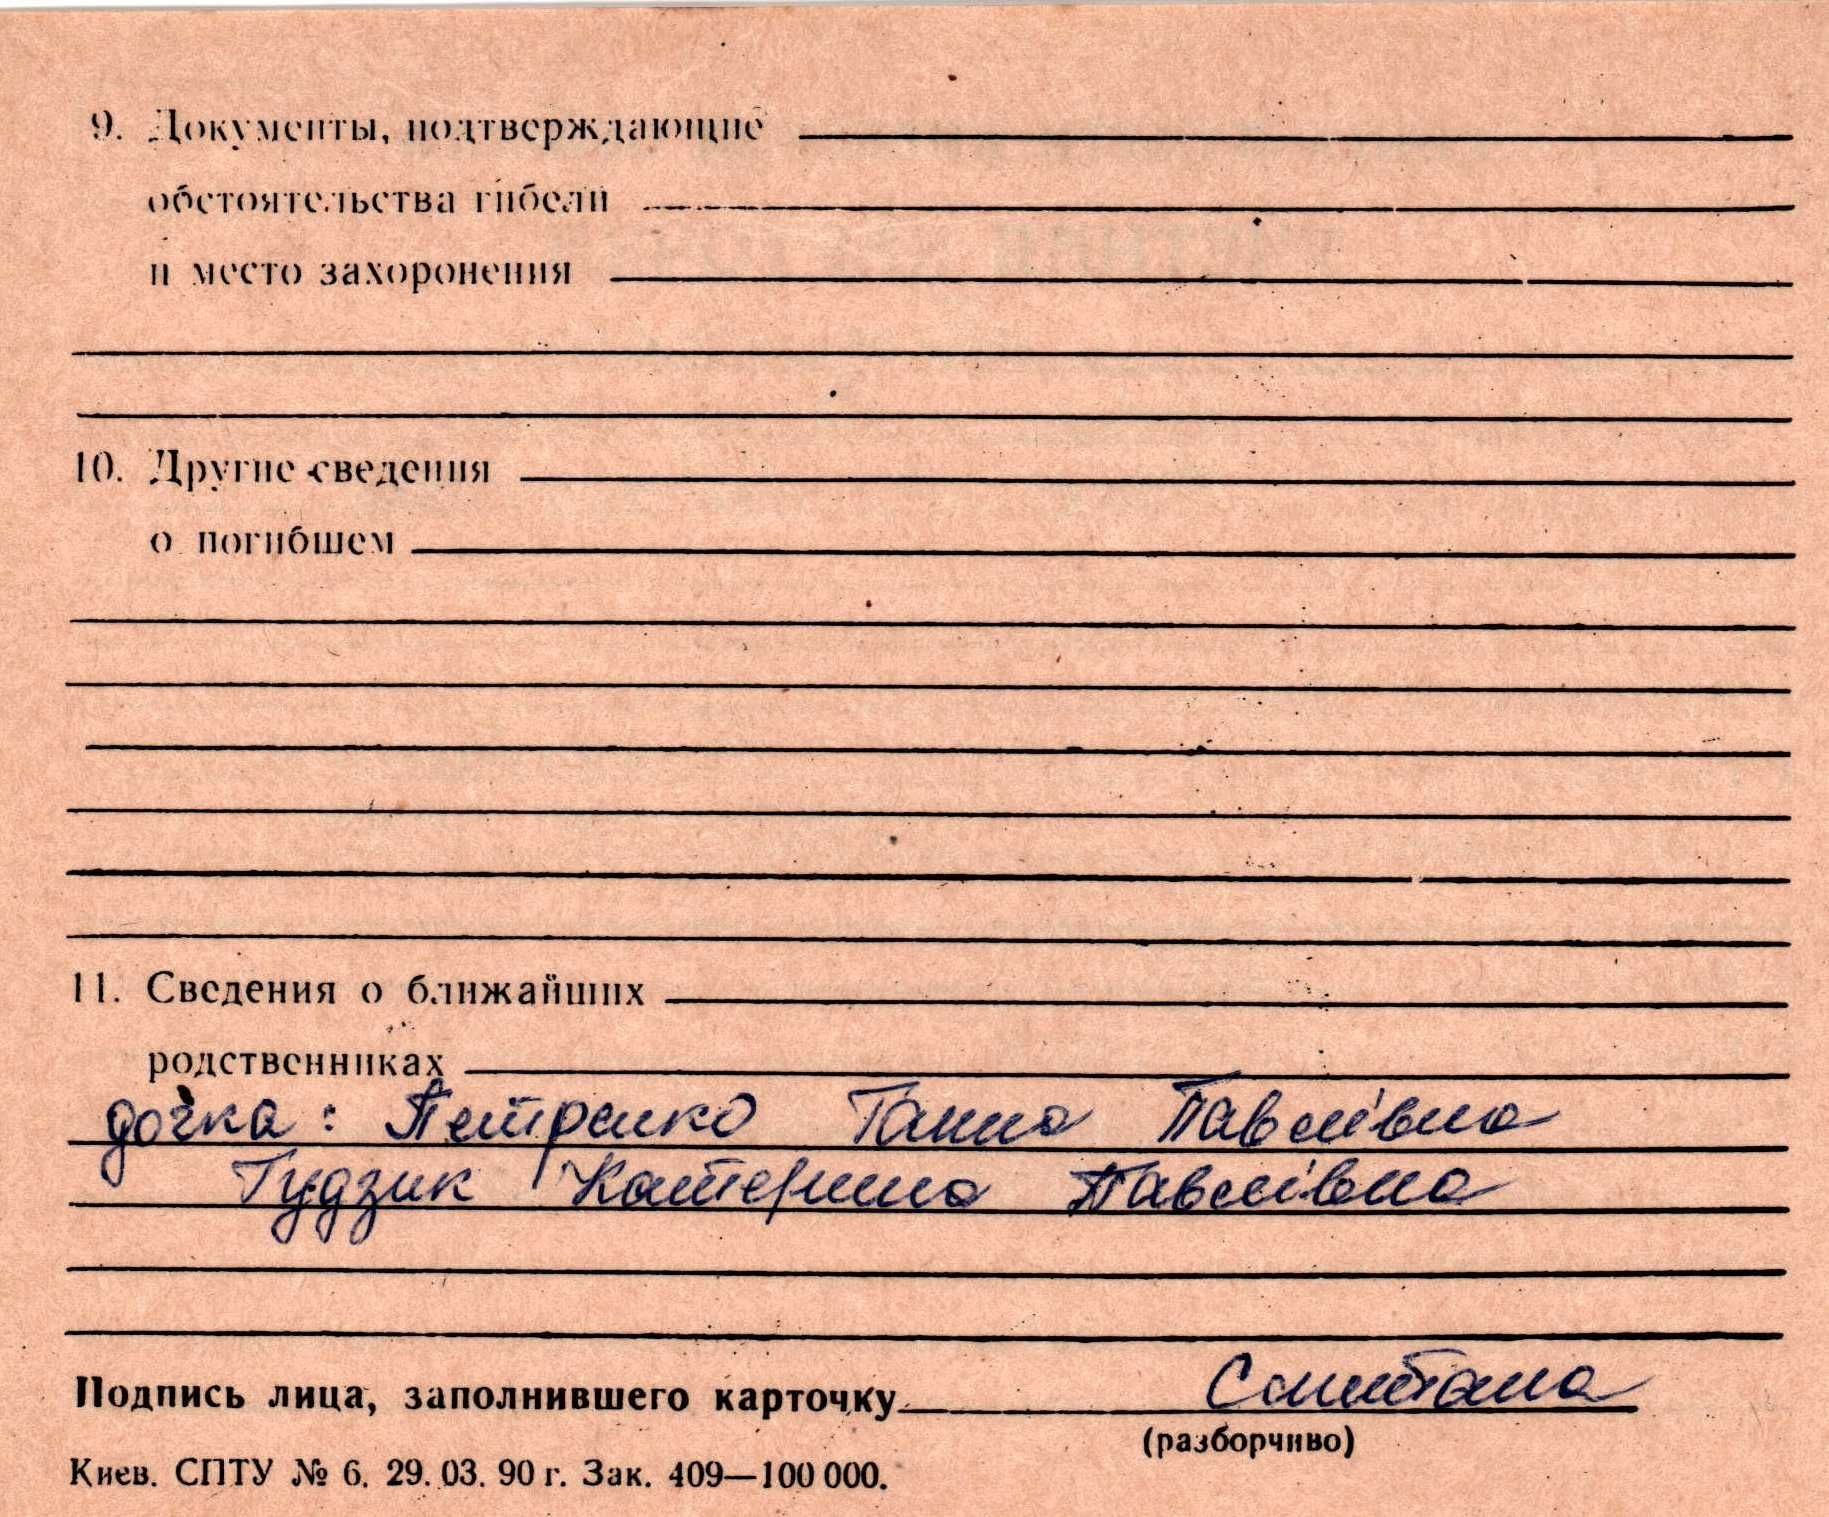 9. Документы, подтверждающие
обстоятельства гибели
и место захоронения
10. Другие сведения
о погибшем
11. Сведения о ближайших
родственниках
дочка: Петренко Ганна Павлівна
Гудзик Катерина Павлівна
Подпись лица, заполнившего карточку
(разборчиво)
Киев. СПТУ № 6. 29. 03. 90 г. Зак. 409—100 000.